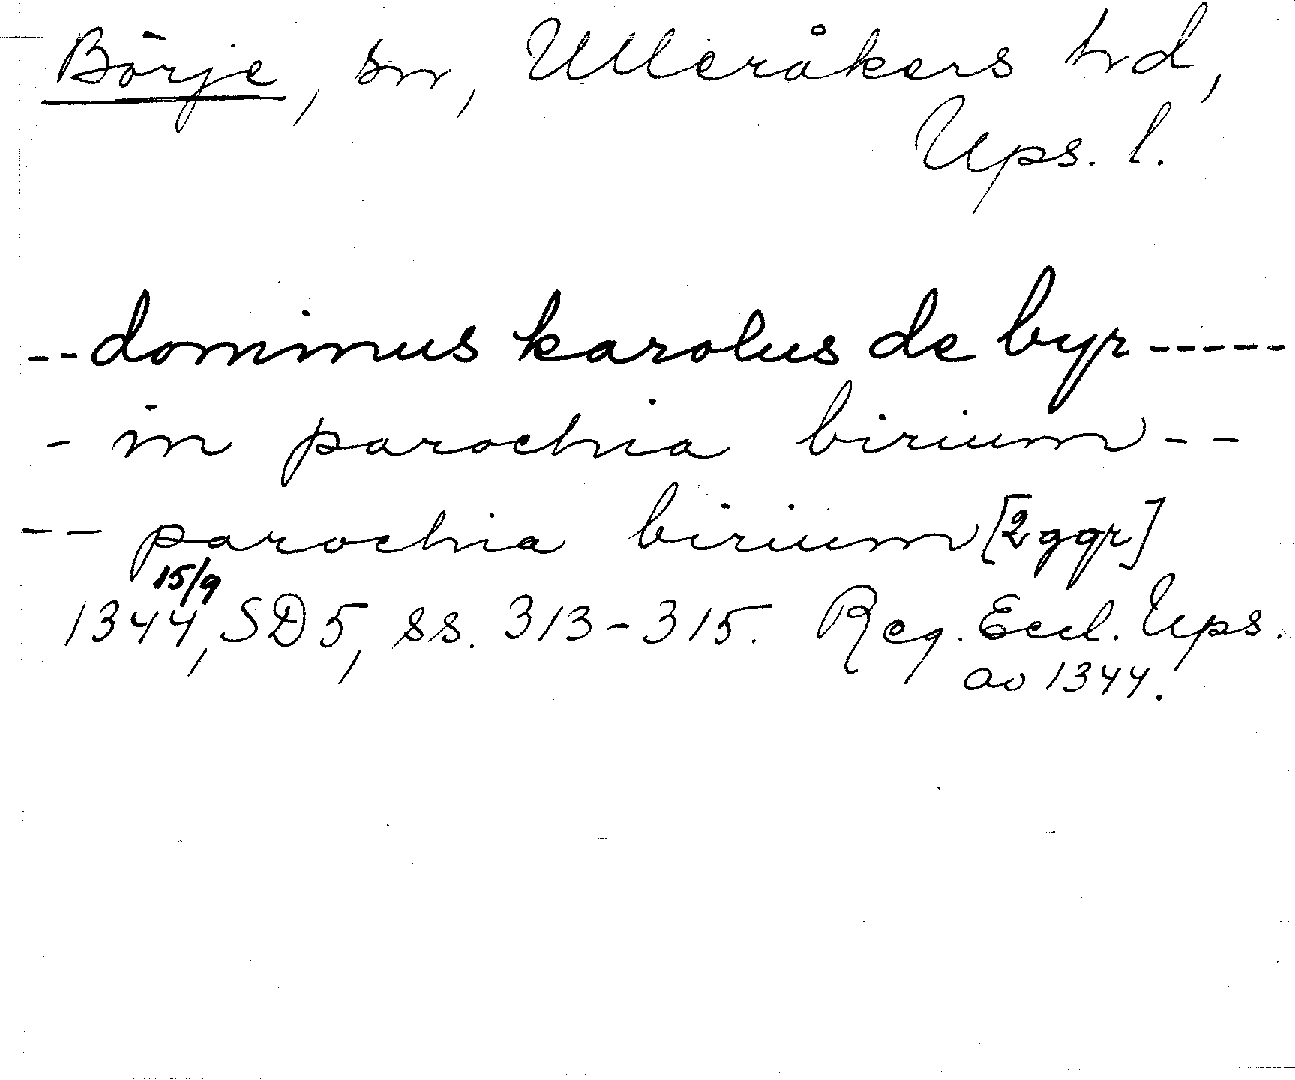 Börje, sn, Ulleråkers hd,
Ups. l.
--dominus karolus de byr-----
- in parochia birium--
-- parochia birium [2 ggr]
15/9
1344, SD 5, ss. 313-315. Reg. Eccl. Ups.
ao 1344.